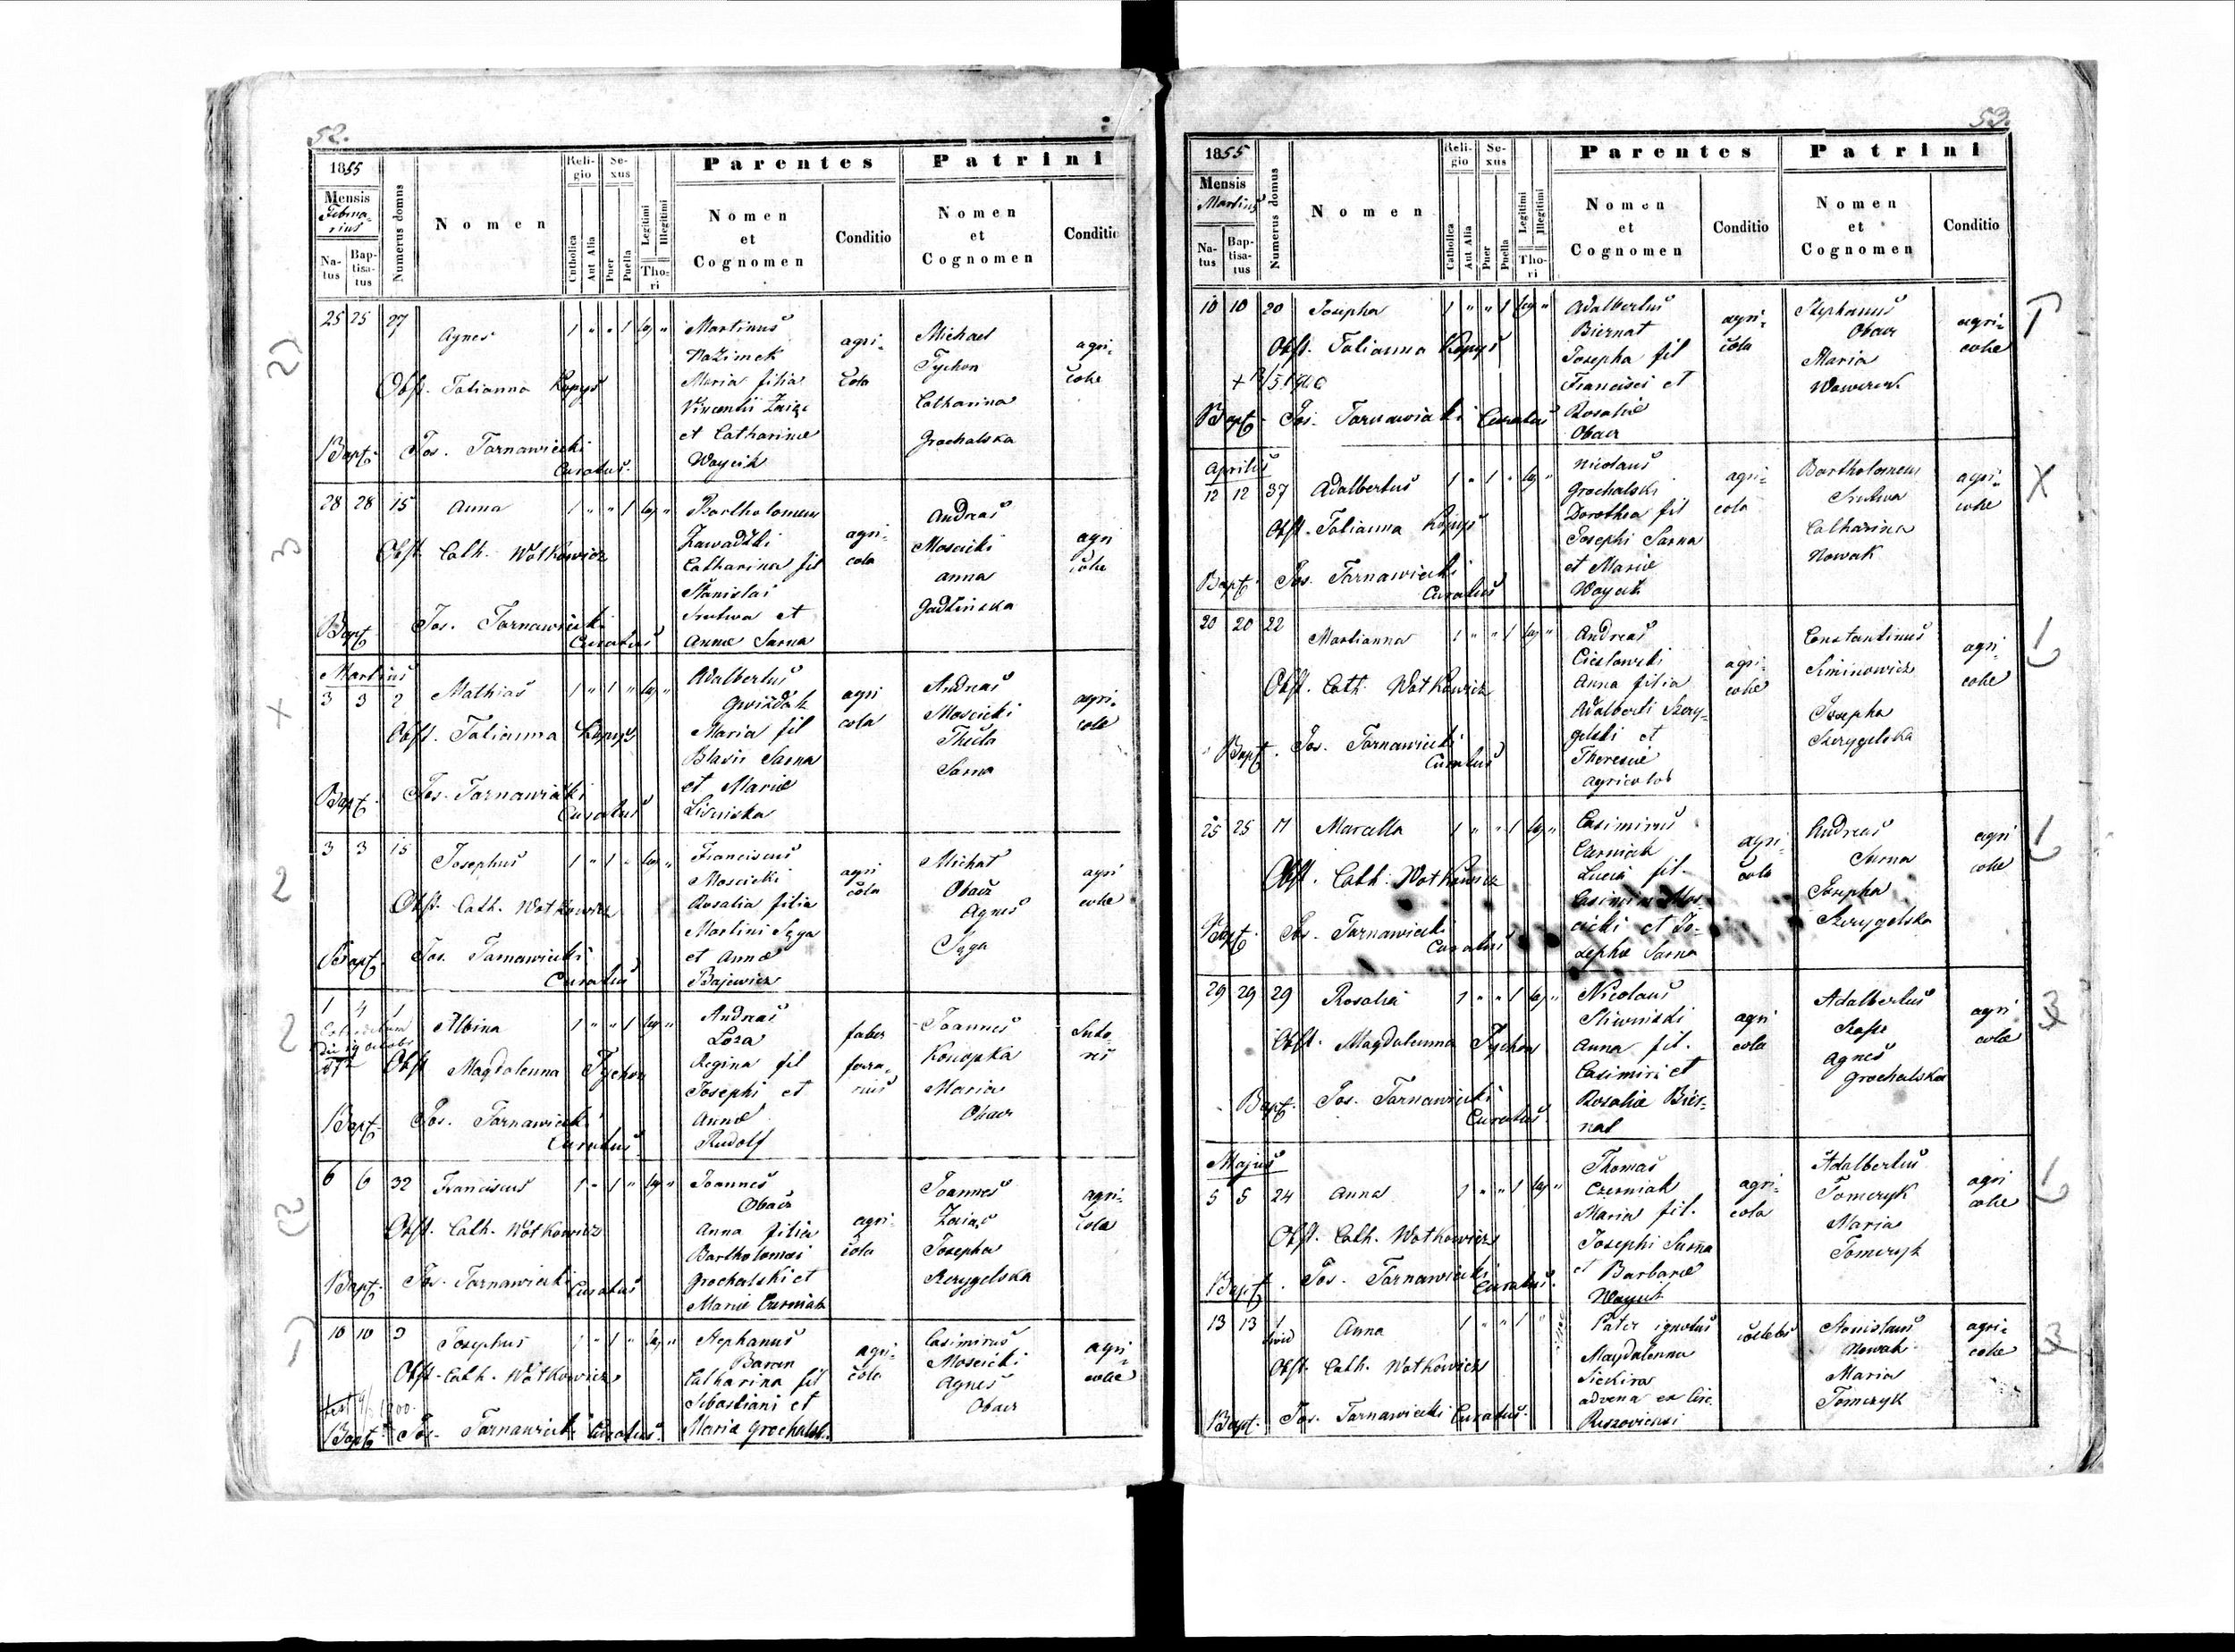 52.
1855
Mensis
Februa-
rius
Na-
tus
Bap-
tisa-
tus
Numerus domus
Nomen
Reli-
gio
Catholica
Aut Alia
Se-
xus
Puer
Puella
Legitimi
Illegitimi
Tho-
ri
Parentes
Nomen
et
Cognomen
Conditio
Patrini
Nomen
et
Cognomen
Conditio
25 25 27 Agnes 1 " " 1 leg "
Obst. Tatianna Kopys
Bapt. Jos. Tarnawiecki
Curatus.
Martinus
Nazimek
Maria filia
Vincentii Zaiąc
et Catharinæ
Woycik
agri-
cola
Michael
Tychon
Catharina
Grochalska
agri-
colæ
28 28 15 Anna 1 " " 1 leg "
Obst. Cath. Wotkowicz
Bapt. Jos. Tarnawiecki
Curatus
Bartholomeus
Zawadzki
Catharina fil
Stanislai
Srutwa et
Annæ Sarna
agri-
cola
Andreas
Moscicki
Anna
Gadzinska
agri
colæ
Martius
3 3 2 Mathias 1 " 1 " leg "
Obst. Tatianna Kopys
Bapt. Jos. Tarnawiecki
Curatus
Adalbertus
Gwizdak
Maria fil
Blasii Sarna
et Mariæ
Lisniska
agri
cola
Andreas
Moscicki
Thecla
Sarna
agri-
colæ
3 3 15 Josephus 1 " 1 " leg "
Obst. Cath. Wotkowicz
Bapt. Jos. Tarnawiecki
Curatus
Franciscus
Moscicki
Rosalia filia
Martini Sęga
et Annæ
Bajewicz
agri
cola
Michał
Obacz
Agnes
Sęga
agri
colæ
1 4 1 Albina 1 " " 1 leg "
Obst Magdalenna Tychon
Bapt. Jos. Tarnawiecki
Curatus
Andreas
Loza
Regina fil
Josephi et
Annæ
Rudolf
faber
ferra-
rius
Joannes
Konopka
Maria
Obacz
Suto-
res
6 6 32 Franciscus 1 " 1 " leg "
Obst. Cath. Wotkowicz
Bapt. Jos. Tarnawiecki Curatus
Joannes
Obacz
Anna filia
Bartholomæi
Grochalski et
Mariæ Czerniak
agri-
cola
Joannes
Zaiąc
Josepha
Szczygelska
agri-
colæ
10 10 9 Josephus 1 " 1 " leg "
Obst. Cath. Wotkowicz
Bapt. Jos. Tarnawiecki Curatus.
Stephanus
Baran
Catharina fil
Sebastiani et
Maria Grochalsk.
agri-
cola
Casimirus
Moscicki
Agnes
Obacz
agri-
colæ
53.
1855
Mensis
Martius
Na-
tus
Bap-
tisa-
tus
Numerus domus
Nomen
Reli-
gio
Catholica
Aut Alia
Se-
xus
Puer
Puella
Legitimi
Illegitimi
Tho-
ri
Parentes
Nomen
et
Cognomen
Conditio
Patrini
Nomen
et
Cognomen
Conditio
10 10 20 Josepha 1 " " 1 leg "
Obst. Tatianna Kopys
Bapt. Jos. Tarnawiecki Curatus
Adalbertus
Biernat
Josepha fil
Francisci et
Rosaliæ
Obacz
agri-
cola
Stephanus
Obacz
Maria
Wawerek
agri-
colæ
Aprilis
12 12 37 Adalbertus 1 " 1 " leg "
Obst. Tatianna Kopys
Bapt. Jos. Tarnawiecki
Curatus
Nicolaus
Grochalski
Dorothea fil
Josephi Sarna
et Mariæ
Woycik
agri-
cola
Bartholomeus
Srutwa
Catharina
Nowak
agri-
colæ
20 20 22 Marianna 1 " " 1 leg "
Obst. Cath. Wotkowicz
Bapt. Jos. Tarnawiecki
Curatus
Andreas
Cieslowski
Anna filia
Adalberti Szczy-
gelski et
Theresiæ
agri-
colæ
Constantinus
Siminowicz
Josepha
Szczygelska
agri-
colæ
25 25 11 Marcella 1 " " 1 leg "
Obst. Cath. Wotkowicz
Bapt. Jos. Tarnawiecki
Curatus
Casimirus
Czerniak
Lucia fil.
Casimiri Mos-
cicki et Jo-
sephæ Sarna
agri-
cola
Andreas
Sarna
Josepha
Szczygelska
agri
colæ
29 29 29 Rosalia 1 " " 1 leg "
Obst. Magdalenna Tychon
Bapt. Jos. Tarnawiecki
Curatus.
Nicolaus
Sliwinski
Anna fil.
Casimiri et
Rosaliæ Bier-
nat
agri
cola
Adalbertus
Agnes
Grochalska
agri
colæ
Majus
5 5 24 Anna 1 " " 1 leg "
Obst. Cath. Wotkowicz
Bapt. Jos. Tarnawiecki
Curatus.
Thomas
Czerniak
Maria fil.
Josephi Sarna
et Barbaræ
Woycik
agri-
cola
Adalbertus
Tomczyk
Maria
Tomczyk
agri
colæ
13 13 1 Anna 1 " " 1 "
Obst. Cath. Wotkowicz
Bapt. Jos. Tarnawiecki Curatus.
Pater ignotus
Magdalenna
Siekira
advena ex Circ.
Reszoviensi
cœlebs
Stanislaus
Nowak
Maria
Tomczyk
agri-
colæ